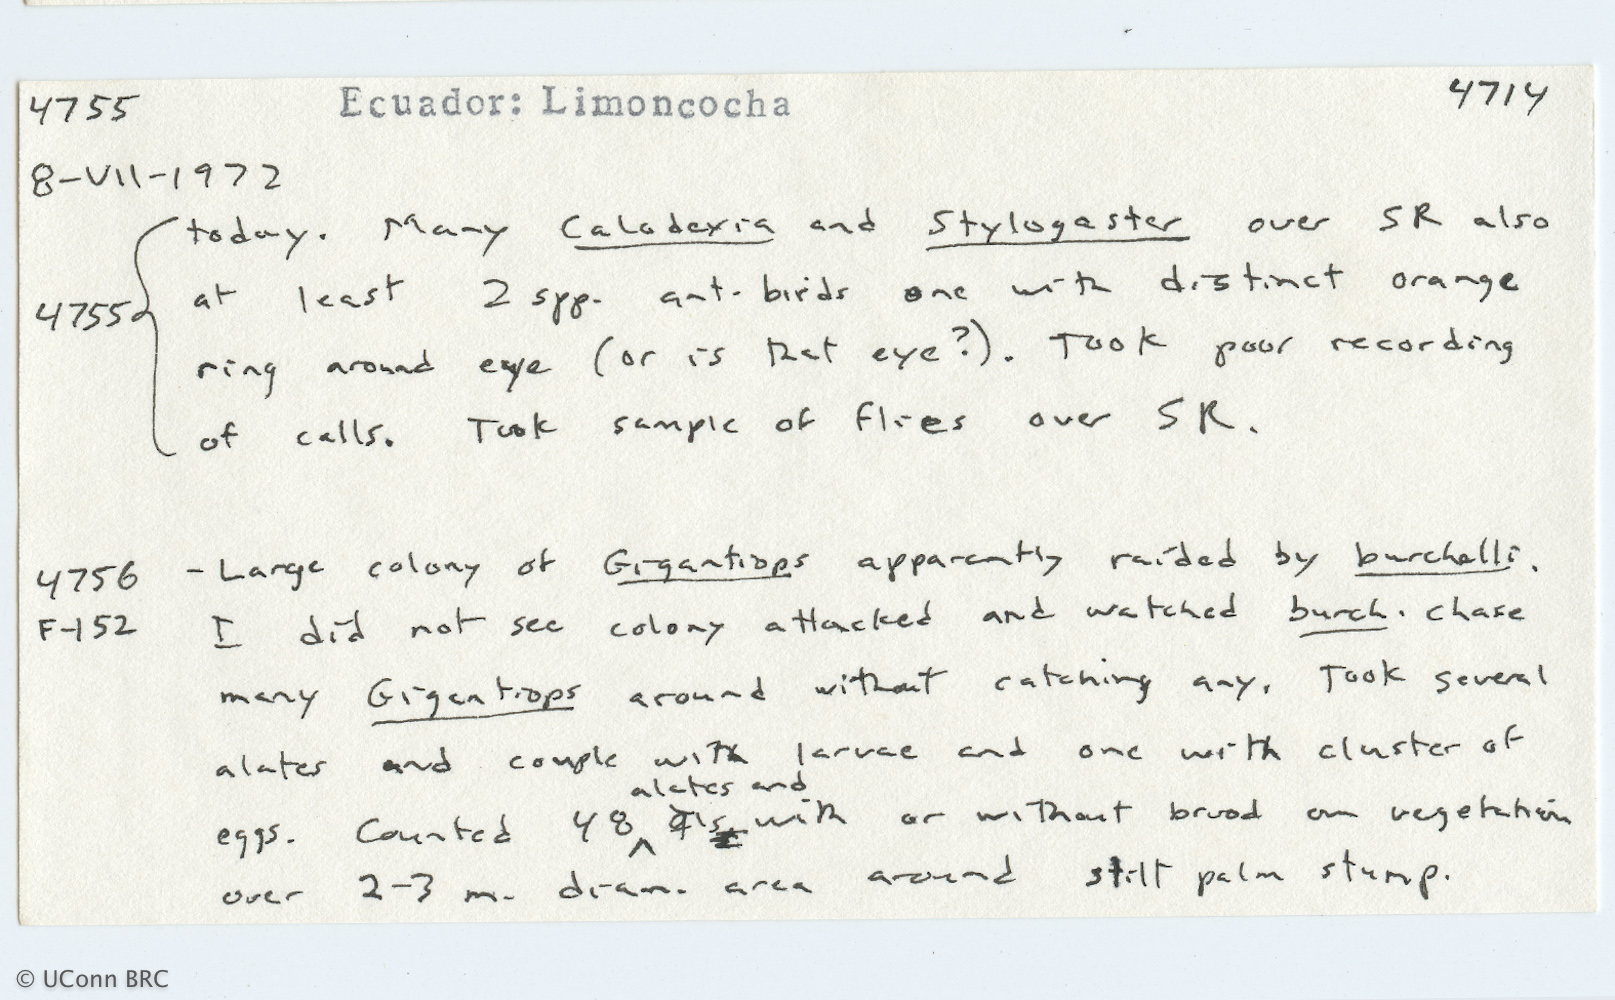 4755 Ecuador: Limoncocha 4714
8-VII-1972
today. Many Calodexia and Stylogaster over SR also
4755 at least 2 spp. ant-birds one with distinct orange
ring around eye (or is that eye?). Took poor recording
of calls. Took sample of flies over SR.
4756 - Large colony of Gigantiops apparently raided by burchelli.
F-152 I did not see colony attacked and watched burch. chase
many Gigantiops around without catching any. Took several
alates and couple with larvae and one with cluster of
alates and
eggs. Counted 48 ^ with or without brood on vegetation
over 2-3 m. diam. area around stilt palm stump.
© UConn BRC